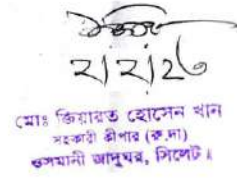 ২১/১/২৬
মোঃ জিয়ারত হোসেন খান
সহকারী কীপার (রু.দা)
ওসমানী জাদুঘর, সিলেট।